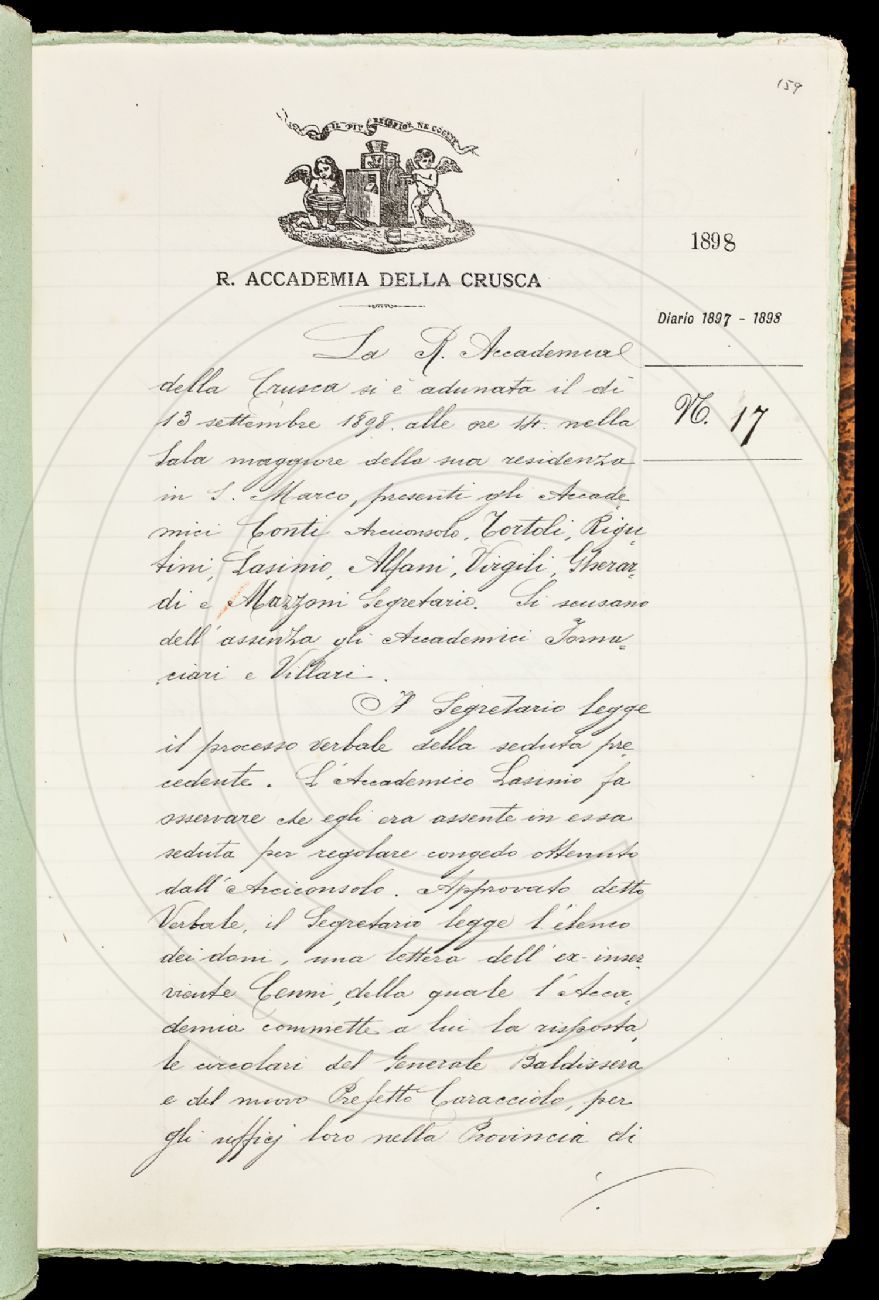 159
IL PIÙ BEL FIOR NE COGLIE
R. ACCADEMIA DELLA CRUSCA
1898
Diario 1897 - 1898
N. 17
La R. Accademia
della Crusca si è adunata il dì
13 settembre 1898. alle ore 14. nella
Sala maggiore della sua residenza
in S. Marco, presenti gli Accade
mici Conti Arciconsolo, Tortoli, Rigu-
tini, Lasinio, Alfani, Virgili, Gherar-
di e Mazzoni Segretario. Si scusano
dell'assenza gli Accademici Forna-
ciari e Villari.
Il Segretario legge
il processo verbale della seduta pre
cedente. L'Accademico Lasinio fa
osservare che egli era assente in essa
seduta per regolare congedo ottenuto
dall'Arciconsolo. Approvato detto
Verbale, il Segretario legge l'elenco
dei doni, una lettera dell'ex-inser
viente Cenni, della quale l'Acca-
demia commette a lui la risposta,
le circolari del Generale Baldissera
e del nuovo Prefetto Caracciolo, per
gli ufficj loro nella Provincia di